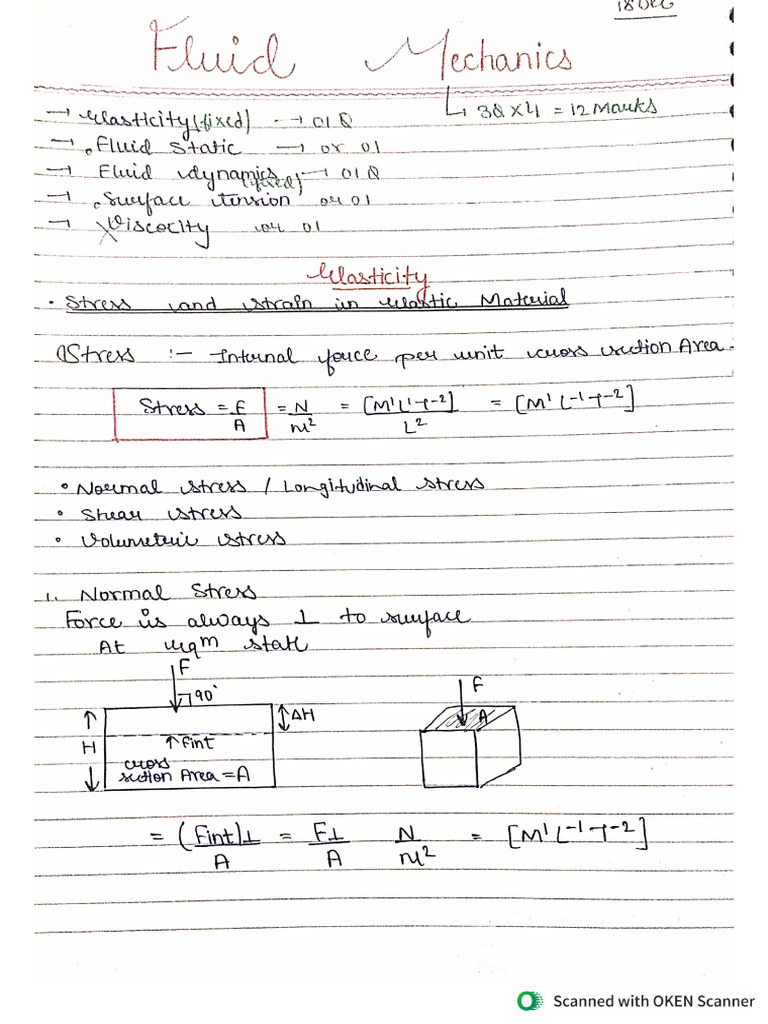 18 Dec
Fluid Mechanics
↳ 3Q×4 = 12 Marks
→ Elasticity (fixed) → 01 Q
→ • Fluid Static → or 01
→ Fluid dynamics (fixed) → 01 Q
→ • Surface tension or 01
→ Viscocity or 01
Elasticity
• Stress and strain in elastic Material
Stress :- Internal force per unit cross section Area.
Stress = F/A = N/m² = [M¹L¹T⁻²]/L² = [M¹L⁻¹T⁻²]
• Normal stress / Longitudinal stress
• Shear stress
• Volumetric stress
1. Normal Stress
Force is always ⊥ to surface
At eqm state
F
90°
ΔH
H
↑ Fint
cross
section Area = A
F
A
= (Fint)⊥/A = F⊥/A N/m² = [M¹L⁻¹T⁻²]
Scanned with OKEN Scanner